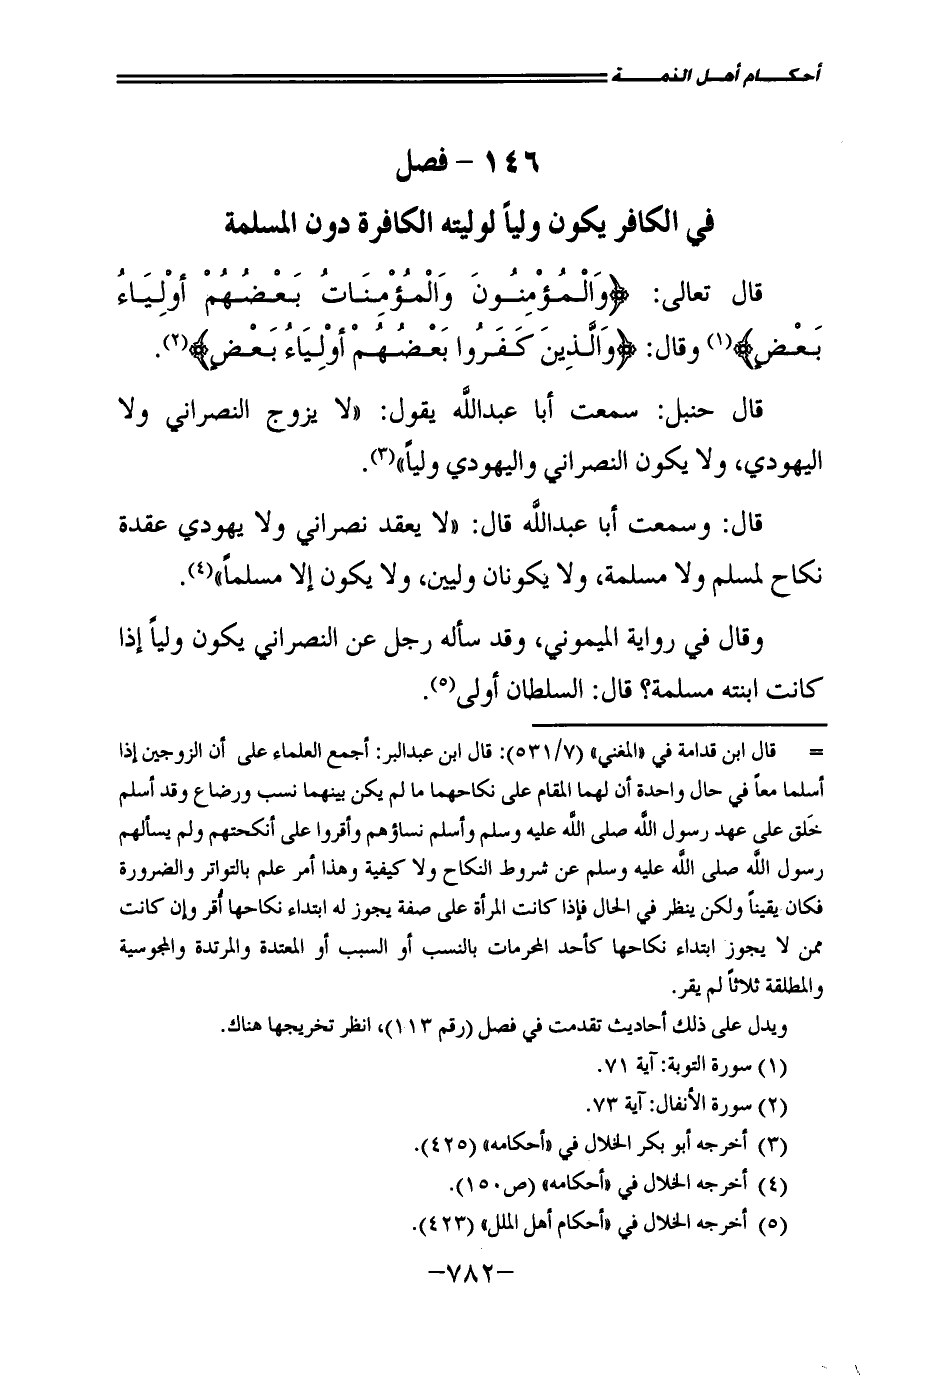 أحكـــام أهـل الذمـــة
١٤٦ - فصل
في الكافر يكون ولياً لوليته الكافرة دون المسلمة
قال تعالى: ﴿وَالْمُؤْمِنُونَ وَالْمُؤْمِنَاتُ بَعْضُهُمْ أَوْلِيَاءُ
بَعْضٍ﴾(١) وقال: ﴿وَالَّذِينَ كَفَرُوا بَعْضُهُمْ أَوْلِيَاءُ بَعْضٍ﴾(٢).
قال حنبل: سمعت أبا عبدالله يقول: «لا يزوج النصراني ولا
اليهودي، ولا يكون النصراني واليهودي ولياً»(٣).
قال: وسمعت أبا عبدالله قال: «لا يعقد نصراني ولا يهودي عقدة
نكاح لمسلم ولا مسلمة، ولا يكونان وليين، ولا يكون إلا مسلماً»(٤).
وقال في رواية الميموني، وقد سأله رجل عن النصراني يكون ولياً إذا
كانت ابنته مسلمة؟ قال: السلطان أولى(٥).
= قال ابن قدامة في «المغني» (٥٣١/٧): قال ابن عبدالبر: أجمع العلماء على أن الزوجين إذا
أسلما معاً في حال واحدة أن لهما المقام على نكاحهما ما لم يكن بينهما نسب ورضاع وقد أسلم
خَلق على عهد رسول الله صلى الله عليه وسلم وأسلم نساؤهم وأقروا على أنكحتهم ولم يسألهم
رسول الله صلى الله عليه وسلم عن شروط النكاح ولا كيفية وهذا أمر علم بالتواتر والضرورة
فكان يقيناً ولكن ينظر في الحال فإذا كانت المرأة على صفة يجوز له ابتداء نكاحها أُقر وإن كانت
ممن لا يجوز ابتداء نكاحها كأحد المحرمات بالنسب أو السبب أو المعتدة والمرتدة والمجوسية
والمطلقة ثلاثاً لم يقر.
ويدل على ذلك أحاديث تقدمت في فصل (رقم ١١٣)، انظر تخريجها هناك.
(١) سورة التوبة: آية ٧١.
(٢) سورة الأنفال: آية ٧٣.
(٣) أخرجه أبو بكر الخلال في «أحكامه» (٤٢٥).
(٤) أخرجه الخلال في «أحكامه» (ص١٥٠).
(٥) أخرجه الخلال في «أحكام أهل الملل» (٤٢٣).
-٧٨٢-